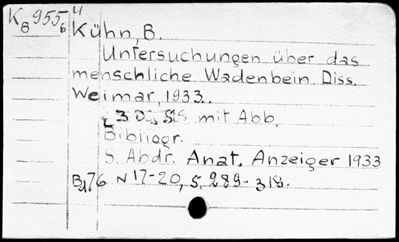 K 955 4
8 6
Kühn, B.
Untersuchungen über das
menschliche Wadenbein. Diss.
Weimar, 1933.
mit Abb.
Bibliogr.
S. Abdr. Anat. Anzeiger 1933
Bd 76 N 17-20, S. 289-318.